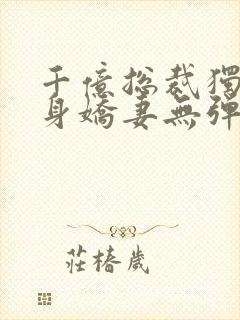 千億總裁獨
身嬌妻無彈
莊椿歲